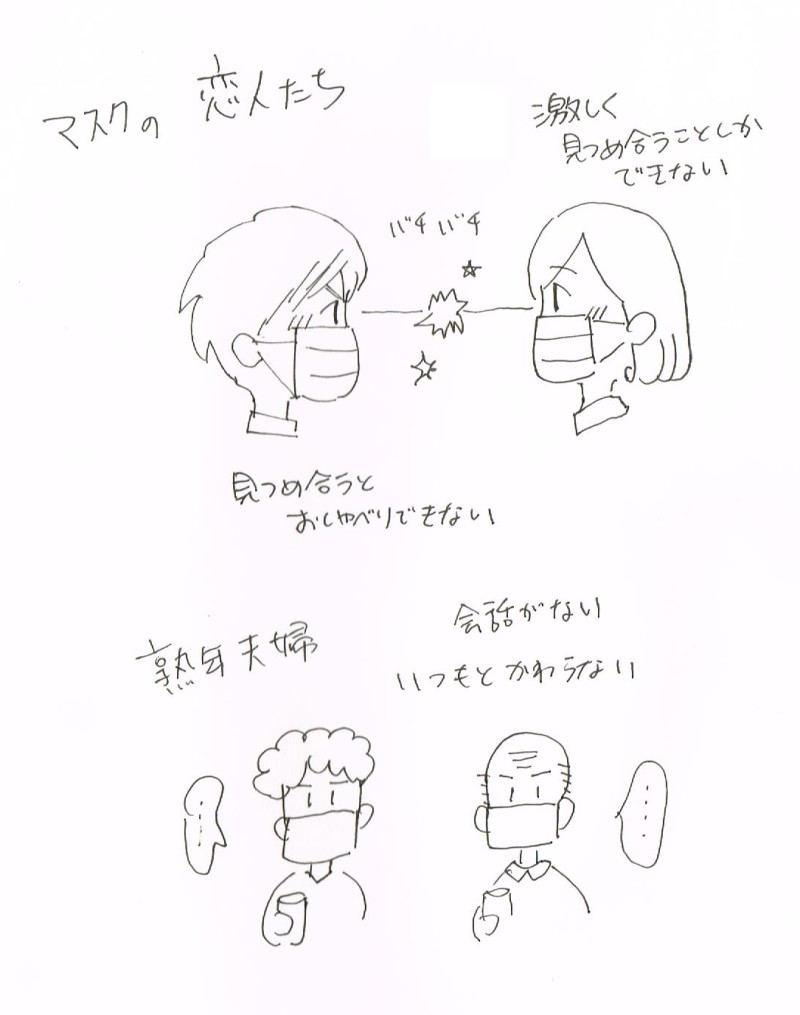 マスクの 恋人たち
激しく
見つめ合うことしか
できない
バチバチ
見つめ合うと
おしゃべりできない
熟年夫婦
会話がない
いつもとかわらない
・・・・
・・・・